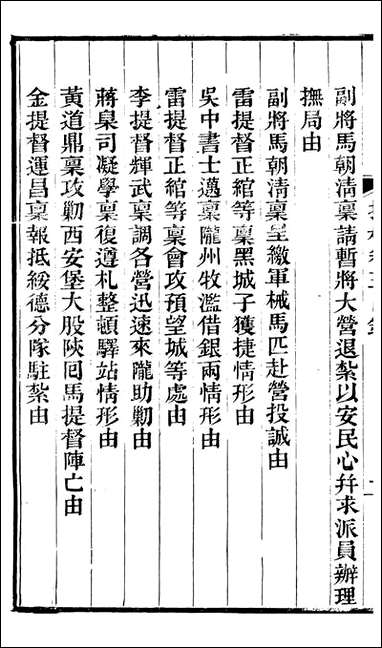 副將馬朝淸稟請暫將大營退紮以安民心幷求派員辦理
撫局由
副將馬朝淸稟呈繳軍械馬匹赴營投誠由
雷提督正綰等稟黑城子獲捷情形由
吳中書士邁稟隴州牧濫借銀兩情形由
雷提督正綰等稟會攻預望城等處由
李提督輝武稟調各營迅速來隴助勦由
蔣臬司凝學稟復遵札整頓驛站情形由
黃道鼎稟攻勦西安堡大股陜回馬提督陣亡由
金提督運昌稟報抵綏德分隊駐紮由